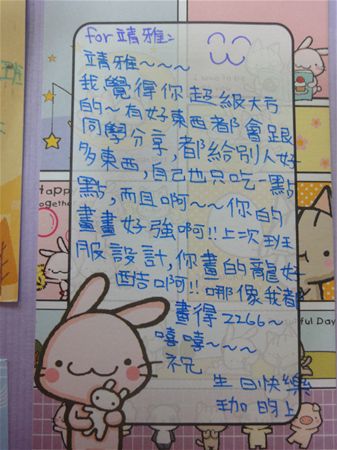 for 靖雅:
靖雅~~~
我覺得你超級大方
的~有好東西都會跟
同學分享,都給別人好
多東西,自己也只吃一點
點,而且啊~~你的
畫畫好強啊!!上次班
服設計,你畫的龍好
酷啊!!哪像我都
畫得2266~
嘻嘻~~~
祝
生日快樂
班
ful Day